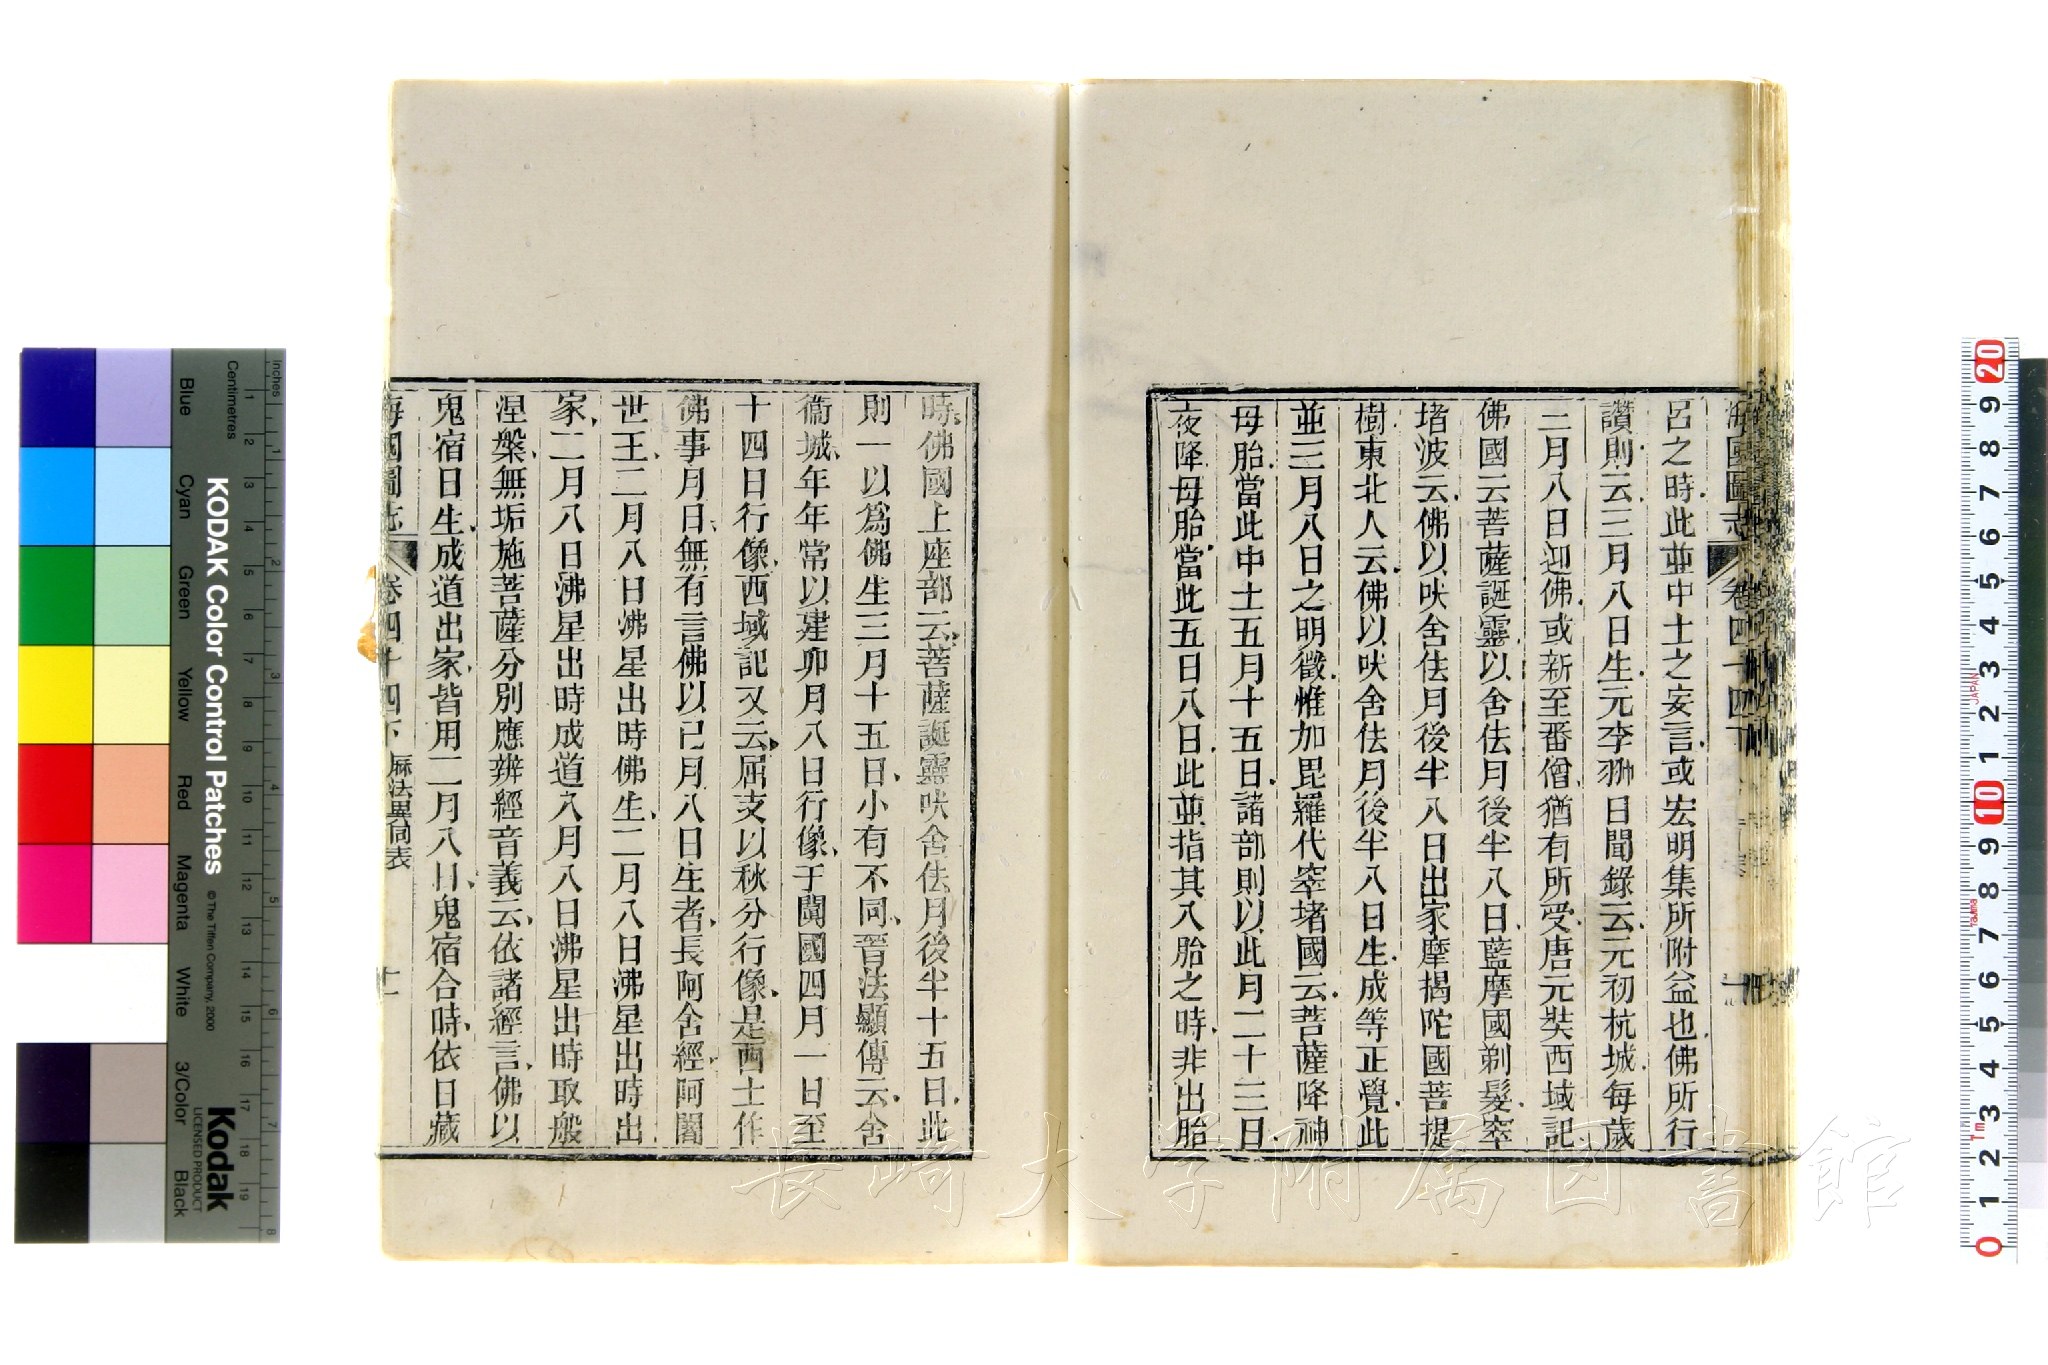 海國圖志 卷四十四下
呂之時此並中士之妄言或宏明集所附益也佛所行
讚則云三月八日生元李翀日聞錄云元初杭城每歲
二月八日迎佛或新至番僧猶有所受唐元奘西域記
佛國云菩薩誕靈以舍佉月後半八日藍摩國剃髮窣
堵波云佛以吠舍佉月後半八日出家摩揭陀國菩提
樹東北人云佛以吠舍佉月後半八日生成等正覺此
並三月八日之明徵惟加毘羅代窣堵國云菩薩降神
母胎當此中土五月十五日諸部則以此月二十三日
夜降母胎當此五日八日此並指其入胎之時非出胎
時佛國上座部云菩薩誕靈吠舍佉月後半十五日此
則一以爲佛生三月十五日小有不同晉法顯傳云舍
衞城年年常以建卯月八日行像于闐國四月一日至
十四日行像西域記又云屈支以秋分行像是西土作
佛事月日無有言佛以巳月八日生者長阿含經阿闍
世王二月八日沸星出時佛生二月八日沸星出時出
家二月八日沸星出時成道八月八日沸星出時取般
涅槃無垢施菩薩分別應辨經音義云依諸經言佛以
鬼宿日生成道出家皆用二月八日鬼宿合時依日藏
海國圖志 卷四十四下 厤法異同表 十一
KODAK Color Control Patches
© The Tiffen Company, 2000
Kodak
LICENSED PRODUCT
Inches 1 2 3 4 5 6 7 8
Centimetres 1 2 3 4 5 6 7 8 9 10 11 12 13 14 15 16 17 18 19
Blue Cyan Green Yellow Red Magenta White 3/Color Black
20 9 8 7 6 5 4 3 2 1 10 9 8 7 6 5 4 3 2 1 0
JAPAN
長崎大学附属図書館